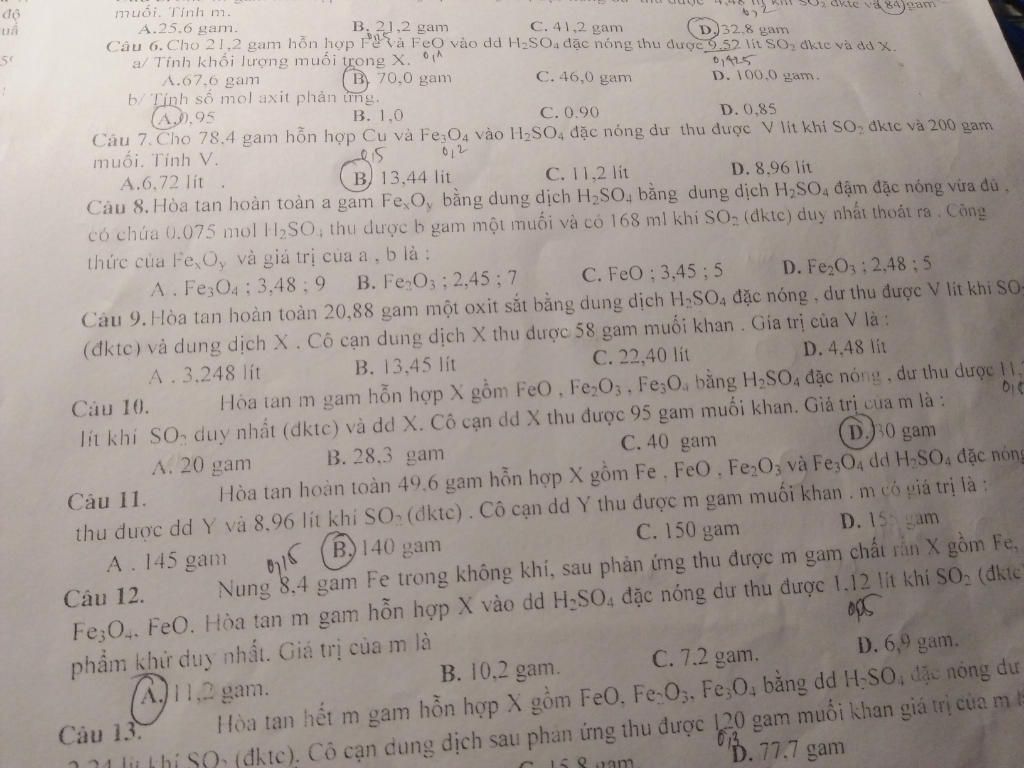 độ
muối. Tính m.
A.25,6 gam. B. 21,2 gam C. 41,2 gam D. 32,8 gam
Câu 6. Cho 21,2 gam hỗn hợp Fe và FeO vào dd H₂SO₄ đặc nóng thu được 9,52 lít SO₂ đktc và dd X.
a/ Tính khối lượng muối trong X. 0,425
A.67,6 gam B. 70,0 gam C. 46,0 gam D. 100,0 gam.
b/ Tính số mol axit phản ứng.
A.0,95 B. 1,0 C. 0.90 D. 0,85
Câu 7. Cho 78,4 gam hỗn hợp Cu và Fe₃O₄ vào H₂SO₄ đặc nóng dư thu được V lít khí SO₂ đktc và 200 gam
muối. Tính V. 0,5 0,2
A.6,72 lít . B. 13,44 lít C. 11,2 lít D. 8,96 lít
Câu 8. Hòa tan hoàn toàn a gam FeₓOᵧ bằng dung dịch H₂SO₄ bằng dung dịch H₂SO₄ đậm đặc nóng vừa đủ ,
có chứa 0.075 mol H₂SO₄ thu được b gam một muối và có 168 ml khí SO₂ (đktc) duy nhất thoát ra . Công
thức của FeₓOᵧ và giá trị của a , b là :
A . Fe₃O₄ ; 3,48 ; 9 B. Fe₂O₃ ; 2,45 ; 7 C. FeO ; 3,45 ; 5 D. Fe₂O₃ ; 2,48 ; 5
Câu 9. Hòa tan hoàn toàn 20,88 gam một oxit sắt bằng dung dịch H₂SO₄ đặc nóng , dư thu được V lít khí SO₂
(đktc) và dung dịch X . Cô cạn dung dịch X thu được 58 gam muối khan . Gía trị của V là :
A . 3,248 lít B. 13,45 lít C. 22,40 lít D. 4,48 lít
Câu 10. Hòa tan m gam hỗn hợp X gồm FeO , Fe₂O₃ , Fe₃O₄ bằng H₂SO₄ đặc nóng , dư thu được 11,
lít khí SO₂ duy nhất (đktc) và dd X. Cô cạn dd X thu được 95 gam muối khan. Giá trị của m là :
A. 20 gam B. 28,3 gam C. 40 gam D. 30 gam
Câu 11. Hòa tan hoàn toàn 49,6 gam hỗn hợp X gồm Fe , FeO , Fe₂O₃ và Fe₃O₄ dd H₂SO₄ đặc nóng
thu được dd Y và 8,96 lít khí SO₂ (đktc) . Cô cạn dd Y thu được m gam muối khan . m có giá trị là :
A . 145 gam B. 140 gam C. 150 gam D. gam
0,15
Câu 12. Nung 8,4 gam Fe trong không khí, sau phản ứng thu được m gam chất rắn X gồm Fe,
Fe₃O₄, FeO. Hòa tan m gam hỗn hợp X vào dd H₂SO₄ đặc nóng dư thu được 1,12 lít khí SO₂ (đktc
phẩm khử duy nhất. Giá trị của m là 0,05
A. 11,2 gam. B. 10,2 gam. C. 7.2 gam. D. 6,9 gam.
Câu 13. Hòa tan hết m gam hỗn hợp X gồm FeO, Fe₂O₃, Fe₃O₄ bằng dd H₂SO₄ đặc nóng dư
lít khí SO₂ (đktc). Cô cạn dung dịch sau phản ứng thu được 120 gam muối khan giá trị của m
0,3
gam D. 77.7 gam